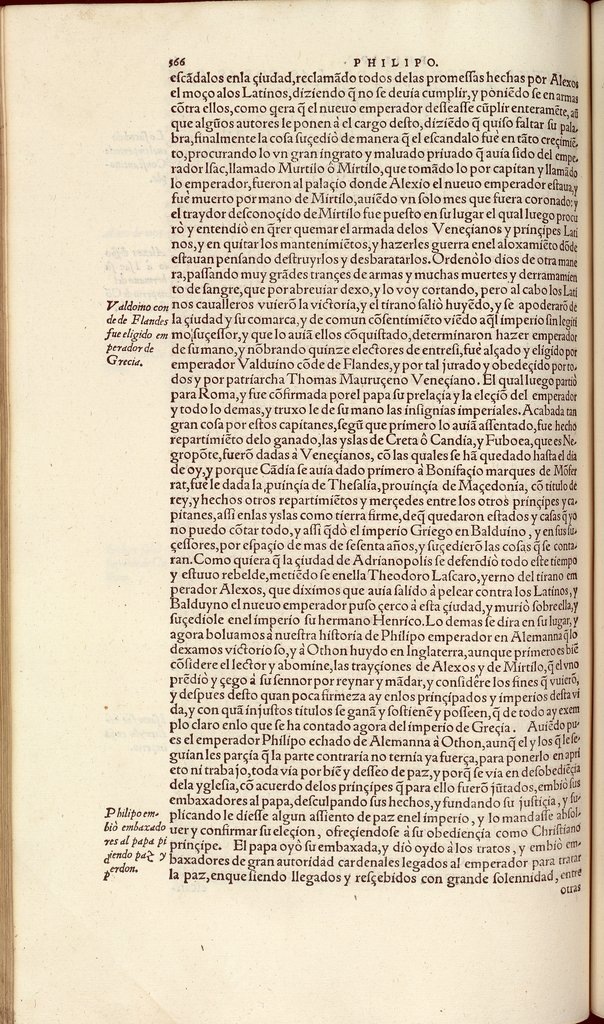 566
PHILIPO.
escãdalos enla çiudad,reclamãdo todos delas promessas hechas por Alexos
el moço alos Latinos,diziendo q̃ no se deuia cumplir,y poniẽdo se en armas
cõtra ellos,como q̃ra q̃ el nueuo emperador desseasse cũplir enteramẽte, aũ
que algũos autores le ponen à el cargo desto,diziẽdo q̃ quiso faltar su pala
bra,finalmente la cosa suçediò de manera q̃ el escandalo fuè en tãto creçimiẽ
to,procurando lo vn gran ingrato y maluado priuado q̃ auia sido del empe
rador Isac,llamado Murtilo ô Mirtilo,que tomãdo lo por capitan y llamãdo
lo emperador,fueron al palaçio donde Alexio el nueuo emperador estaua,y
fuè muerto por mano de Mirtilo,auiẽdo vn solo mes que fuera coronado:y
el traydor desconoçido de Mirtilo fue puesto en su lugar el qual luego procu
rò y entendiò en q̃rer quemar el armada delos Veneçianos y prinçipes Lati
nos,y en quitar los mantenimiẽtos,y hazerles guerra enel aloxamiẽto dõde
estauan pensando destruyrlos y desbaratarlos.Ordenòlo dios de otra mane
ra,passando muy grãdes trançes de armas y muchas muertes y derramamien
to de sangre,que por abreuiar dexo,y lo voy cortando, pero al cabo los Lati
nos caualleros vuierõ la victoria,y el tirano saliò huyẽdo,y se apoderarõ de
la çiudad y su comarca,y de comun cõsentimiẽto viẽdo aq̃l imperio sin legiti
mo suçessor,y que lo auiã ellos cõquistado,determinaron hazer emperador
de su mano,y nõbrando quinze electores de entre si,fuè alçado y eligido por
emperador Valduino cõde de Flandes,y por tal jurado y obedeçido por to-
dos y por patriarcha Thomas Mauruçeno Veneçiano. El qual luego partiò
para Roma,y fue cõfirmada por el papa su prelaçia y la eleçiõ del emperador
y todo lo demas,y truxo le de su mano las insignias imperiales.Acabada tan
gran cosa por estos capitanes,segũ que primero lo auiã assentado,fue hecho
repartimiẽto delo ganado,las yslas de Creta ô Candia,y Fuboea,que es Ne-
gropõte,fuerõ dadas à Veneçianos, cõ las quales se hã quedado hasta el dia
de oy,y porque Cãdia se auia dado primero à Bonifaçio marques de Mõfer
rat,fue le dada la puinçia de Thesalia,prouinçia de Maçedonia, cõ titulo de
rey,y hechos otros repartimiẽtos y merçedes entre los otros prinçipes y ca-
pitanes,assi enlas yslas como tierra firme,deq̃ quedaron estados y casas q̃ yo
no puedo cõtar todo,y assi q̃dò el imperio Griego en Balduino, y en sus su-
çessores,por espaçio de mas de sesenta años,y suçedierõ las cosas q̃ se conta-
ran.Como quiera q̃ la çiudad de Adrianopolis se defendiò todo este tiempo
y estuuo rebelde,metiẽdo se enella Theodoro Lascaro,yerno del tirano em
perador Alexos, que diximos que auia salido à pelear contra los Latinos,y
Balduyno el nueuo emperador puso çerco à esta çiudad,y muriò sobre ella,y
suçediole enel imperio su hermano Henrico.Lo demas se dira en su lugar,y
agora boluamos à nuestra historia de Philipo emperador en Alemanna q̃ lo
dexamos victorioso,y à Othon huydo en Inglaterra,aunque primero es biẽ
cõsidere el lector y abomine,las trayçiones de Alexos y de Mirtilo,q̃ el vno
prẽdiò y çegò à su sennor por reynar y mãdar, y considére los fines q̃ vuierõ,
y despues desto quan poca firmeza ay enlos prinçipados y imperios desta vi
da,y con quã injustos titulos se ganã y sostienẽ y posseen,q̃ de todo ay exem
plo claro enlo que se ha contado agora del imperio de Greçia. Auiẽdo pu-
es el emperador Philipo echado de Alemanna à Othon,aunq̃ el y los q̃ le se-
guian les parçia q̃ la parte contraria no ternia ya fuerça,para ponerlo en apri
eto ni trabajo,toda via por biẽ y desseo de paz,y porq̃ se via en desobediẽçia
dela yglesia,cõ acuerdo delos prinçipes q̃ para ello fuerõ jũtados,embiò sus
embaxadores al papa,desculpando sus hechos,y fundando su justiçia, y su-
plicando le diesse algun assiento de paz enel imperio, y lo mandasse absol-
uer y confirmar su eleçion, ofreçiendose à su obediençia como Christiano
prinçipe. El papa oyò su embaxada,y diò oydo à los tratos, y embiò em-
baxadores de gran autoridad cardenales legados al emperador para tratar
la paz,enque siendo llegados y resçebidos con grande solennidad, entre
otras
Valdoino con
de de Flandes
fue eligido em
perador de
Grecia.
Philipo em-
biò embaxado
res al papa pi
diendo paz y
perdon.